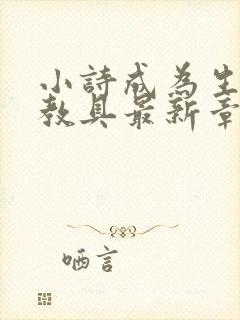 小詩成為生
教具最新章
哂言